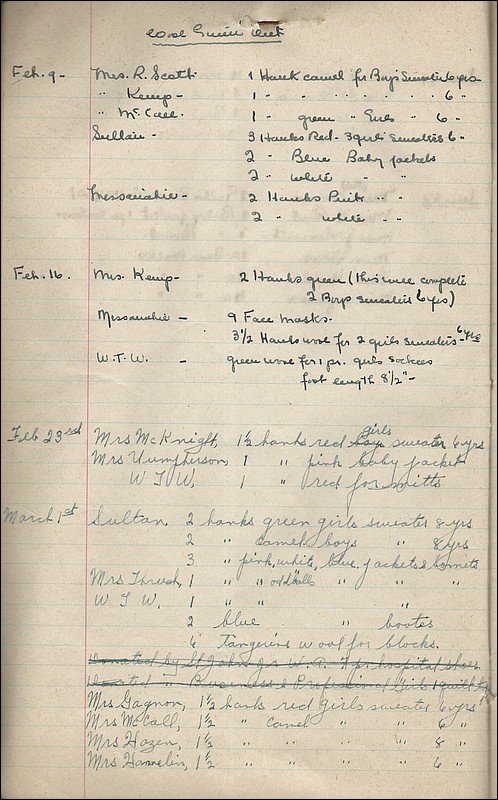 Wool Given out
Feb. 9 - Mrs. R. Scott 1 Hank camel for Boys Sweater 6 yrs
" Kemp - 1 - " " " " " 6 "
" McCall. 1 - green " Girls " 6 -
Sultan - 3 Hanks Red - 3 girls sweaters 6 "
2 - Blue Baby jackets
2 - white " "
Messanabie - 2 Hanks Pink " -
2 " white " -
Feb. 16. Mrs. Kemp - 2 Hanks green (this will complete
2 Boys sweaters 6 yrs)
Messanabie - 9 Face Masks.
3 1/2 Hanks wool for 2 girls sweaters - 6 yrs
W.T.W. - green wool for 1 pr. girls sockees
foot length 8 1/2" -
Feb 23rd Mrs McKnight, 1 1/2 hanks red boys girls sweater 6 yrs
Mrs Humpherson, 1 " pink baby jacket
W T W, 1 " red for mitts
March 1st Sultan, 2 hanks green girls sweater 8 yrs
2 " camel boys " 8 yrs
3 " pink, white, blue jackets & bonnets
Mrs Thrush, 1 " " odd balls " " "
W T W. 1 " " "
2 blue " bootes
6 Tangerine wool for blocks.
Donated by St Johns for W.P.T. pr hospital shoes
Donated " Business & Professional Girls 1 quilt
Mrs Gagnon, 1 1/2 hanks red girls sweater 6 yrs
Mrs McCall, 1 1/2 " camel " " 6 "
Mrs Hazen, 1 1/2 " " " " 8 "
Mrs Hamelin, 1 1/2 " " " " 6 "